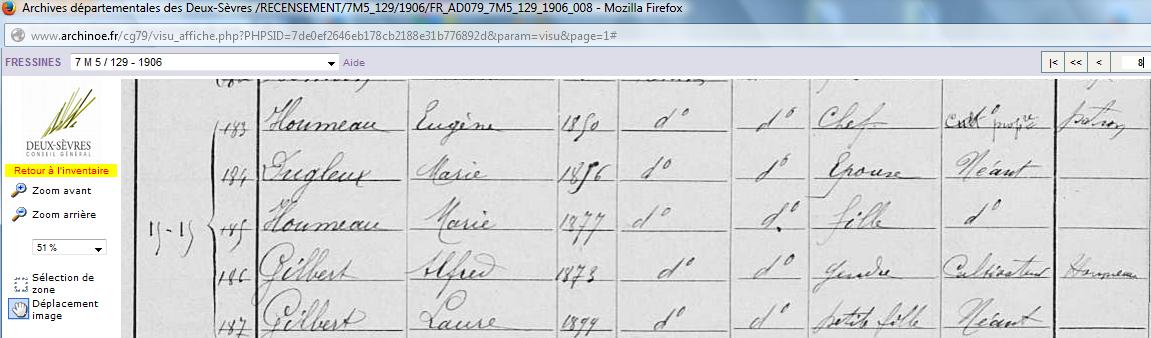 Archives départementales des Deux-Sèvres /RECENSEMENT/7M5_129/1906/FR_AD079_7M5_129_1906_008 - Mozilla Firefox
www.archinoe.fr/cg79/visu_affiche.php?PHPSID=7de0ef2646eb178cb2188e31b776892d&param=visu&page=1#
FRESSINES 7 M 5 / 129 - 1906 Aide |< << < 8
DEUX-SÈVRES
CONSEIL GÉNÉRAL
Retour à l'inventaire
Zoom avant
Zoom arrière
51 %
Sélection de
zone
Déplacement
image
183 Houmeau Eugène 1850 do do Chef Cult propre patron
184 Dugleux Marie 1856 do do Epouse Néant
15-15 185 Houmeau Marie 1877 do do fille do
186 Gilbert Alfred 1873 do do gendre Cultivateur Houmeau
187 Gilbert Laure 1899 do do petite fille Néant